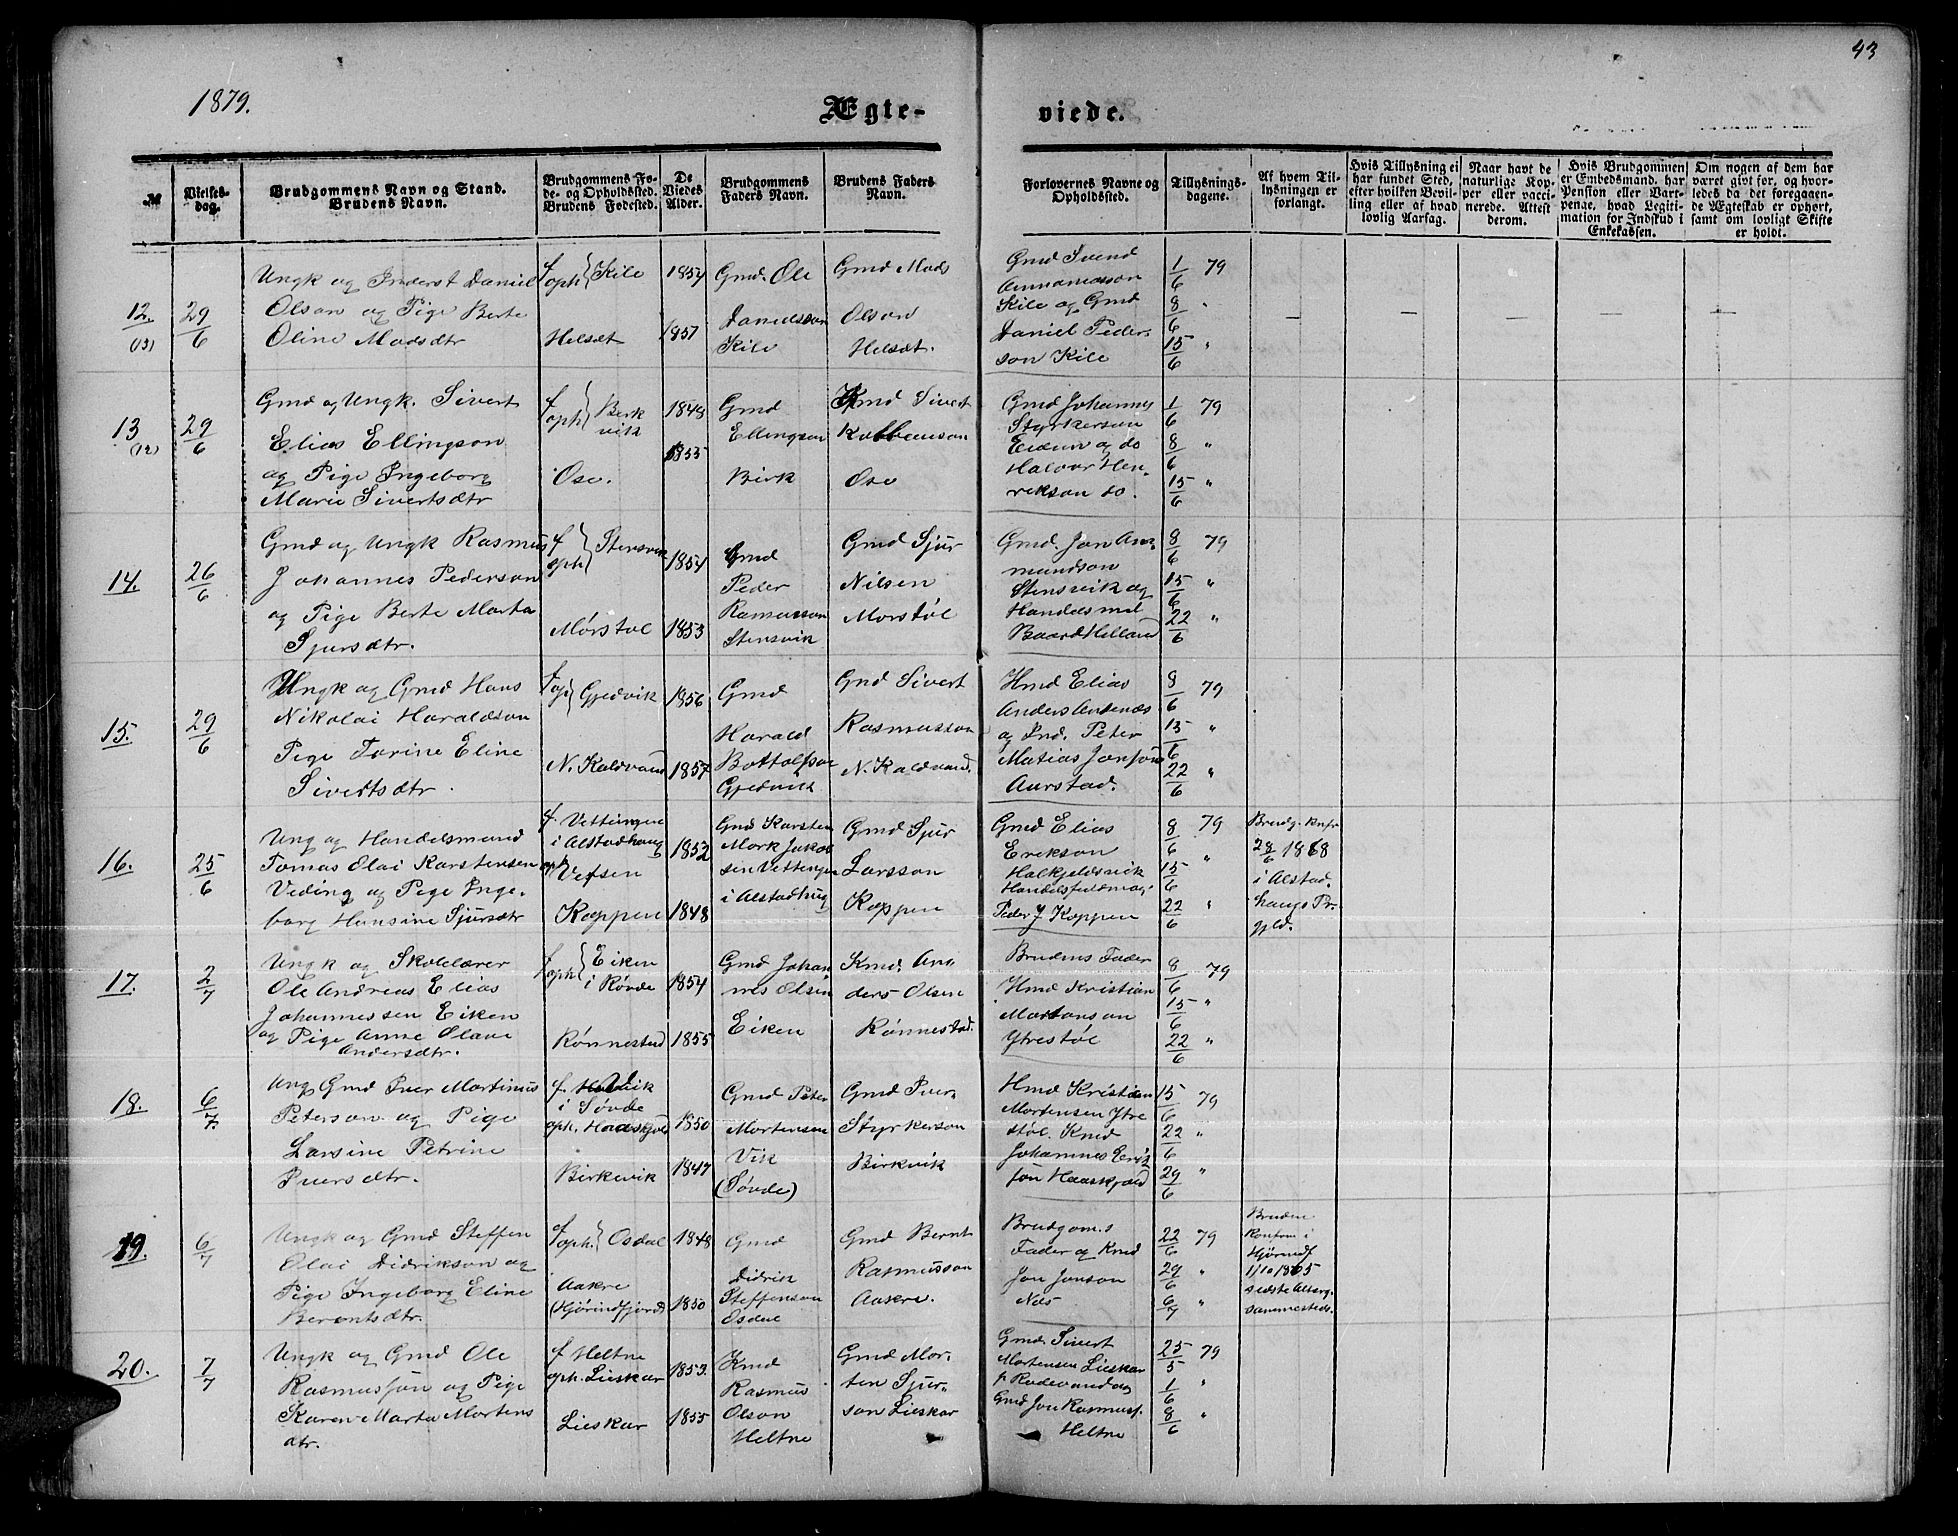 1879.
Ægte-
viede.
43
№
Vielses-
dag.
Brudgommens Navn og Stand.
Brudens Navn.
Brudgommens Fø-
de- og Opholdssted.
Brudens Fødested.
De
Viedes
Alder.
Brudgommens
Faders Navn.
Brudens Faders
Navn.
Forlovernes Navne og
Opholdssted.
Tillysnings-
dagene.
Af hvem Til-
lysningen er
forlangt.
Hvis Tillysning ei
har fundet Sted,
efter hvilken Bevil-
ling eller af hvad
lovlig Aarsag.
Naar havt de
naturlige Kop-
per eller vacci-
nerede. Attest
derom.
Hvis Brudgommen
er Embedsmand, har
Pension eller Vart-
penge, hvad Legiti-
mation for Indskud i
Enkekassen.
Om nogen af dem har
været gift før, og hvor-
ledes da det foregaaen-
de Ægteskab er ophørt,
samt om lovligt Skifte
er holdt.
12.
(13)
29/6
Ungk og Inderst Daniel
Olson og Pige Berte
Oline Madsdtr
f oph } Kile
Helsæt
1854
1857
Gmd. Ole
Danielsson
Kile
Gmd Mads
Olson
Helsæt.
Gmd Svend
Annaniasson
Kile og Gmd
Daniel Peder-
son Kile
1/6 79
8/6 "
15/6 "
13
(12)
29/6
Gmd og Ungk. Sivert
Elias Ellingson
og Pige Ingeborg
Marie Sivertsdtr
f oph } Berk
vik
Ose.
1848
1855
Gmd
Ellingson
Birk
Kmd Sivert
Kolbeinson
Ose
Gmd Johannes
Styrkerson
Eidem og do
Halvor Hen-
rikson do.
1/6 79
8/6 "
15/6 "
14.
26/6
Gmd og Ungk Rasmus
Johannes Pederson
og Pige Berte Marta
Sjursdtr.
f oph } Stensvik
Mørstøl
1854
1853
Gmd
Peder
Rasmusson
Stensvik
Gmd Sjur
Nilsen
Morstøl
Gmd. Jon Am-
mundson
Stensvik og
Handelsmd
Baard Helland
8/6 79
15/6 "
22/6 "
15.
29/6
Ungk og Gmd Hans
Nikolai Haraldson
Pige Torine Eline
Sivertsdtr.
f oph } Gjedvik
N. Kaldvand
1856
1857
Gmd
Harald
Bottolfson
Gjedvik
Gmd Sivert
Rasmusson
N. Kaldvand.
Hmd Elias
Anders Antenæs
og Ind. Peter
Matias Jonson
Aurstad.
8/6 79
15/6 "
22/6 "
16.
25/6
Ung og Handelsmand
Tomas Olai Karstensen
Veding og Pige Inge-
borg Hansine Sjursdtr
f. Vettingen
i Alstadhaug
oph Vefsen
Koppen
1852
1848
Gmd Karsten
Mork Jakob
sen Vettingen
i Alstadhug
Gmd Sjur
Larsson
Koppen
Gmd Elias
Erikson
Halkjeldsvik
Peder J Koppen
8/6 79
15/6 "
22/6 "
Brudg. Knfr
28/6 1868
i Alstad.
haugs Pr-
gjld.
17.
2/7
Ungk og Skolelærer
Ole Andreas Elias
Johannessen Eiken
og Pige Anne Olave
Andersdtr.
f oph } Eiken
i Røvde
Rønnestad
1854
1855
Gmd Johan
nes Olsen
Eiken
Kmd. An
ders Olsen
Rønnestad.
Brudens Fader
Hmd Kristian
Mortenson
Ytrestøl
8/6 79
15/6 "
22/6 "
18.
6/7
Ung Gmd Iver Martinus
Peterson og Pige
Larsine Petrine
Iversdtr.
i Søvde
oph. Haaskjold
Birkevik
1850
1847
Gmd Peter
Mortensen
Vik
(Søvde)
Gmd Iver
Styrkerson
Birkvik
Hmd Kristian
Mortensen Ytre
støl. Kmd
Johannes Erik
son Haaskjold
15/6 79
22/6 "
29/6 "
19.
6/7
Ungk og Gmd Steffen
Olai Didrikson og
Pige Ingeborg Eline
Berentsdtr.
f oph. } Osdal
Aakre
(Hjørindfjord)
1848
1850
Gmd
Didrik
Steffenson
Osdal
Gmd Bernt
Rasmusson
Aakre.
Brudgom.s
Fader og Kmd
Jon Jonson
Nes
22/6 79
29/6 "
6/7 "
Bruden
Konfrm i
Hjørindf
1/10 1865
sidste Altrg.
sammesteds.
20.
7/7
Ungk og Gmd Ole
Rasmusson og Pige
Karen Marta Mortens
dtr.
f Heltne
oph. Lieskar
Lieskar
1853.
1855
Kmd
Rasmus
Olson
Heltne
Gmd Mor-
ten Sjur-
son Lieskar
Gmd Sivert
Mortensen Lieskar
p Rødevand og
Gmd Jon Rasmuss.
Heltne
25/5 79
1/6 "
8/6 "